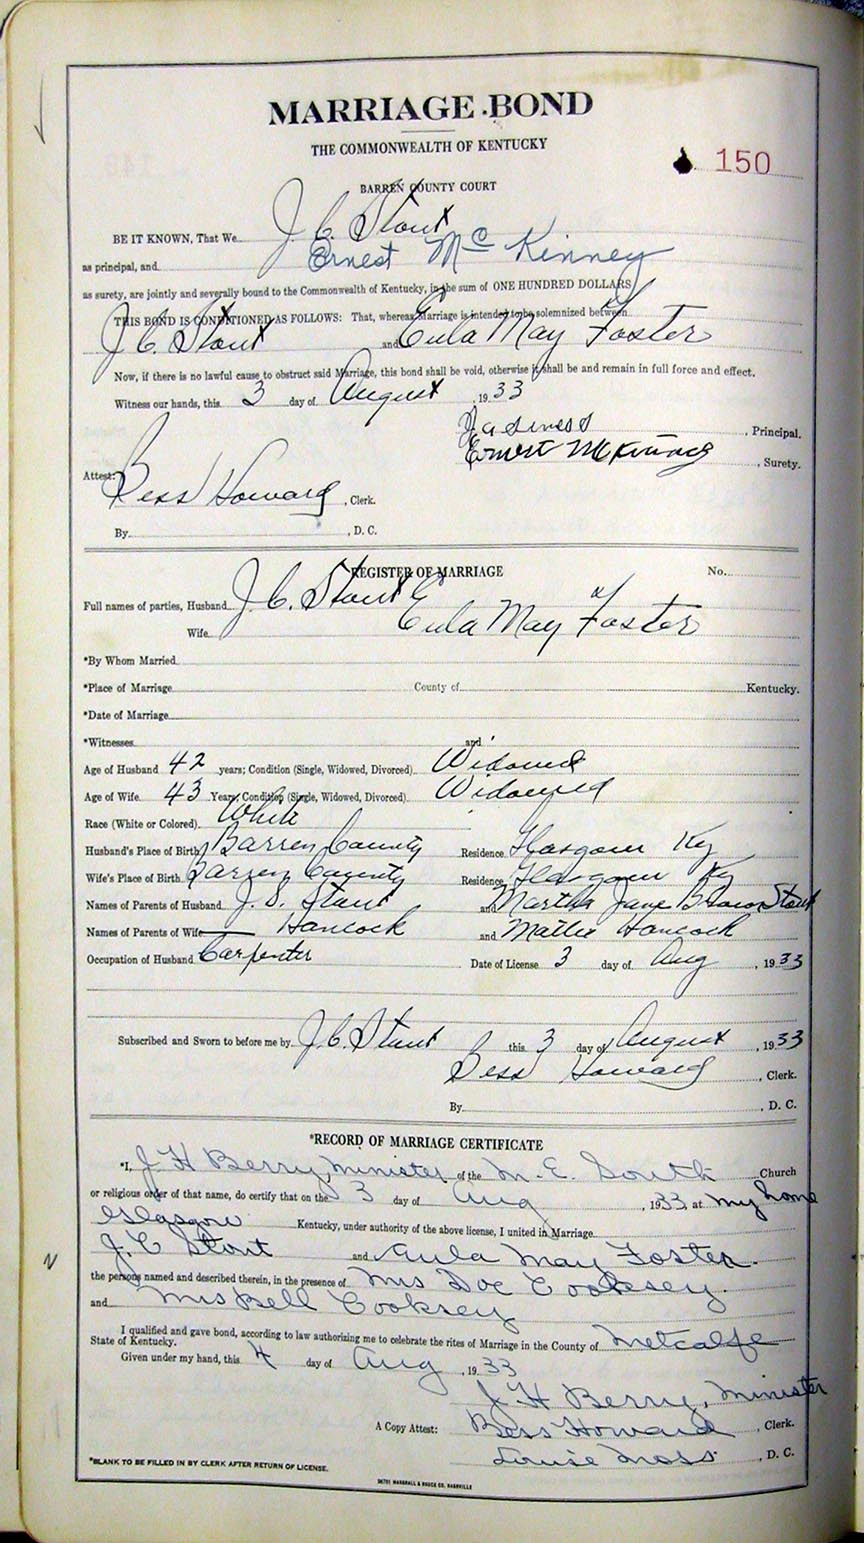 MARRIAGE BOND
THE COMMONWEALTH OF KENTUCKY
150
BARREN COUNTY COURT
BE IT KNOWN, That We J. C. Stout
as principal, and Ernest Mc Kinney
as surety, are jointly and severally bound to the Commonwealth of Kentucky, in the sum of ONE HUNDRED DOLLARS
THIS BOND IS CONDITIONED AS FOLLOWS: That, whereas Marriage is intended to be solemnized between
J. C. Stout and Eula May Foster
Now, if there is no lawful cause to obstruct said Marriage, this bond shall be void, otherwise it shall be and remain in full force and effect.
Witness our hands, this 3 day of August, 1933
, Principal.
Ernest McKinney, Surety.
Attest:
Bess Howard, Clerk.
By , D. C.
REGISTER OF MARRIAGE No.
Full names of parties, Husband J. C. Stout &
Wife Eula May Foster
*By Whom Married
*Place of Marriage County of Kentucky.
*Date of Marriage
*Witnesses and
Age of Husband 42 years; Condition (Single, Widowed, Divorced) Widowed
Age of Wife 43 Years; Condition (Single, Widowed, Divorced) Widowed
Race (White or Colored) White
Husband's Place of Birth Barren County Residence Glasgow Ky
Wife's Place of Birth Barren County Residence Glasgow Ky
Names of Parents of Husband J. S. Stout and Martha Jane Brown Stout
Names of Parents of Wife — Hancock and Mattie Hancock
Occupation of Husband Carpenter Date of License 3 day of Aug, 1933
Subscribed and Sworn to before me by J. C. Stout this 3 day of August, 1933
Bess Howard, Clerk.
By , D. C.
*RECORD OF MARRIAGE CERTIFICATE
*I, J H Berry, Minister of the M. E. South Church
or religious order of that name, do certify that on the 3 day of Aug, 1933, at my home
Glasgow Kentucky, under authority of the above license, I united in Marriage
J. C Stout and Eula May Foster.
the persons named and described therein, in the presence of Mrs Doc Cooksey.
and Mrs Bell Cooksey
I qualified and gave bond, according to law authorizing me to celebrate the rites of Marriage in the County of Metcalfe
State of Kentucky.
Given under my hand, this 4 day of Aug, 1933
J H Berry, Minister
A Copy Attest: Bess Howard, Clerk.
Louise Moss, D. C.
*BLANK TO BE FILLED IN BY CLERK AFTER RETURN OF LICENSE.
MARSHALL & BRUCE CO. NASHVILLE